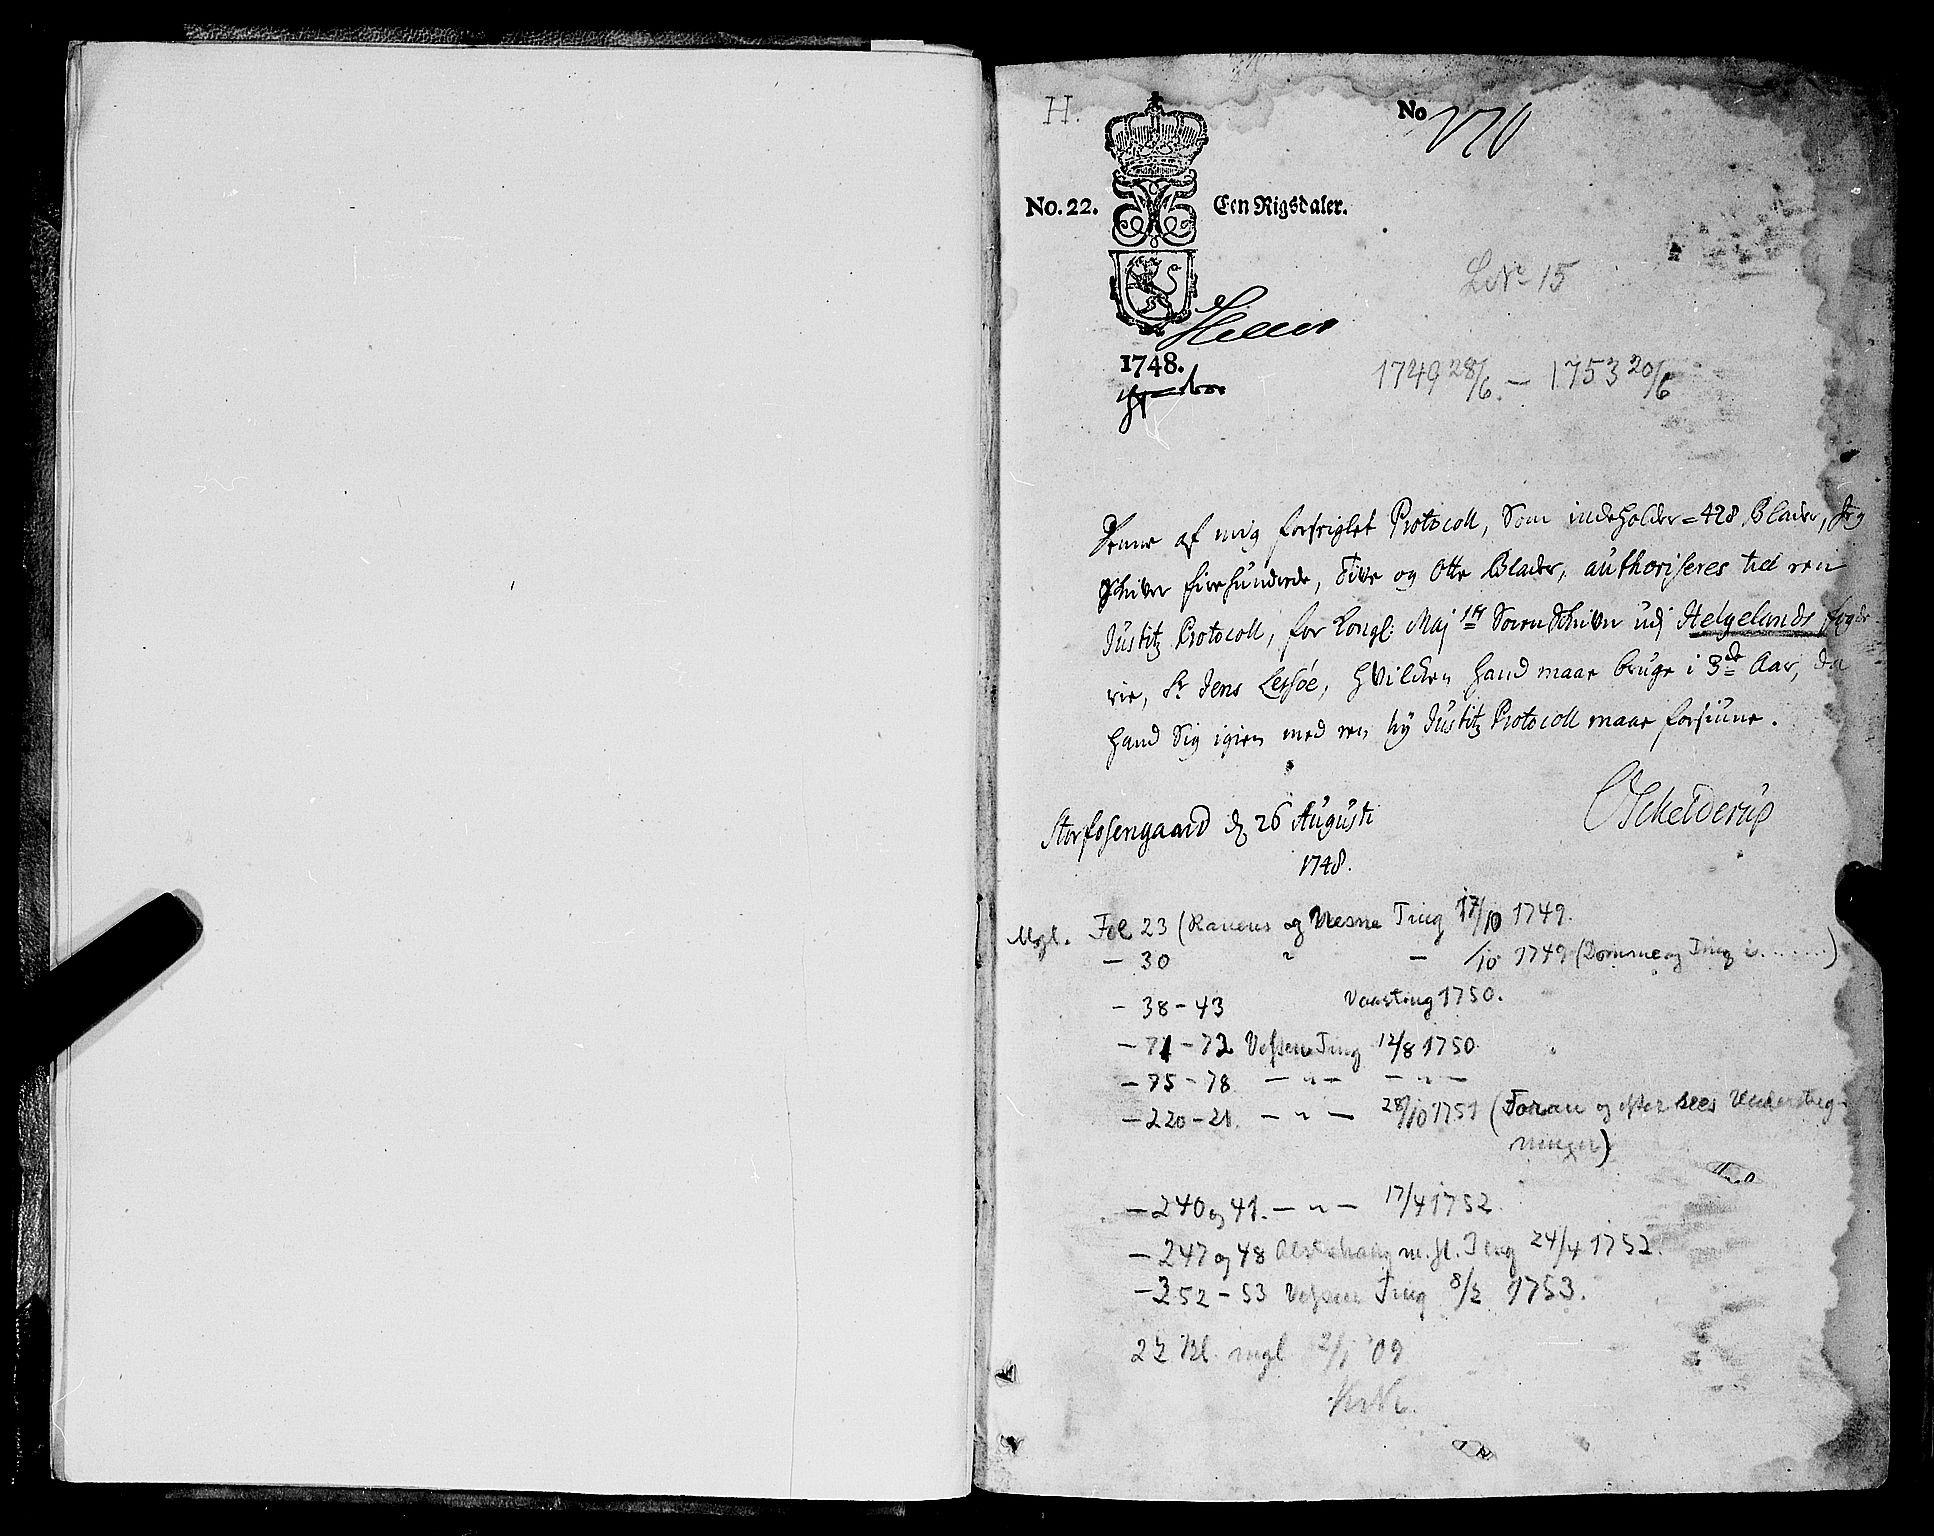 H.
No 170
No. 22. Een Rigsdaler.
L. No 15
1748.
1749 28/6 – 1753 20/6
Denne af mig forseiglet Protocoll, Som indeholder = 428 Blader, Jeg
Skriver fire hundrede, Tive og Otte Blader, authoriseres til een
Justitz Protocoll, for Kongl: May:ts SorenSchriver udj Helgelands fogde-
rie, Sr Jens Lessøe, hvilken hand maae bruge i 3de Aar, da
hand Sig igien med een ny Justitz Protocoll maae forsiune.
OSchelderup
Storfosengaard d 26 Augusti
1748.
Mgl. Fol 23 (Ranens og Nesna Ting 17/10 1749.
– 30 " – /10 1749 (Domme og Ting i ........)
– 38 – 43 Vaarting 1750.
– 71 – 72 Vefsens Ting 12/8 1750
– 75 – 78 – " – – " –
– 220 – 21. – " – 28/10 1751 (Foran og efter sees Understreg-
ninger)
– 240 og 41. – " – 17/4 1752.
– 247 og 48 Alstahoug m. fl. Ting 24/4 1752.
– 352 – 53 Vefsens Ting 8/2 1753.
22 Bl. mgl 2/1 09